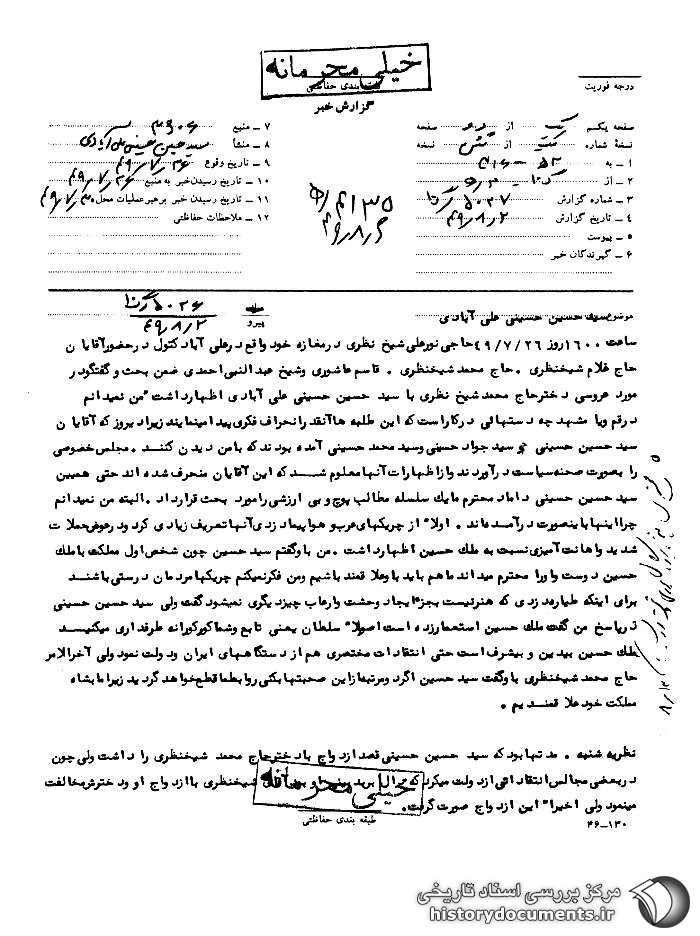 خیلی محرمانه
طبقه بندی حفاظتی
گزارش خبر
درجه فوریت
صفحه یکم از صفحه
نسخهٔ شماره از نسخه
۱ ـ به
۲ ـ از
۳ ـ شماره گزارش
۴ ـ تاریخ گزارش ۴۹/۸/۲
۵ ـ پیوست
۶ ـ گیرندگان خبر
۷ ـ منبع
۸ ـ منشأ سید حسین حسینی علی آبادی
۹ ـ تاریخ وقوع ۴۹/۷/۲۶
۱۰ ـ تاریخ رسیدن خبر به منبع ۴۹/۷/۲۶
۱۱ ـ تاریخ رسیدن خبر برهبر عملیات محل ۴۹/۷/۳۰
۱۲ ـ ملاحظات حفاظتی
موضوع سید حسین حسینی علی آبادی
پیرو
۴۹/۸/۲
ساعت ۱۶۰۰ روز ۴۹/۷/۲۶ حاجی نورعلی شیخ نظری در مغازه خود واقع در علی آباد کتول در حضور آقایان
حاج غلام شیخنظری . حاج محمد شیخنظری . قاسم عاشوری و شیخ عبدالنبی احمدی ضمن بحث و گفتگو در
مورد عروسی دختر حاج محمد شیخ نظری با سید حسین حسینی علی آبادی اظهار داشت "من نمیدانم
در قم و یا مشهد چه دستهائی در کار است که این طلبه ها آنقدر انحراف فکری پیدا مینمایند زیرا دیروز که آقایان
سید حسین حسینی و سید جواد حسینی و سید محمد حسینی آمده بودند که با من دیدن کنند . مجلس خصوصی
را بصورت صحنه سیاست در آوردند و از اظهارات آنها معلوم شد که این آقایان منحرف شده اند حتی همین
سید حسین حسینی داماد محترم ما یک سلسله مطالب پوچ و بی ارزشی را مورد بحث قرار داد . البته من نمیدانم
چرا اینها باینصورت در آمده اند . اولا" از چریکهای عرب و هواپیما دزدی آنها تعریف زیادی کرد و در عوض حملات
شدید و اهانت آمیزی نسبت به ملک حسین اظهار داشت . من باو گفتم سید حسین چون شخص اول مملکت با ملک
حسین دوست و او را محترم میداند ما هم باید باو علاقمند باشیم و من فکر نمیکنم چریکها مردمان درستی باشند
برای اینکه طیاره دزدی که هنر نیست بجز ایجاد وحشت و ارعاب چیز دیگری نمیشود گفت ولی سید حسین حسینی
در پاسخ من گفت ملک حسین استعمار زده است اصولا" سلطان یعنی تابع و شما کورکورانه طرفداری میکنید
ملک حسین بیدین و بیشرف است حتی انتقادات مختصری هم از دستگاههای ایران و دولت نمود ولی آخر الامر
حاج محمد شیخنظری باو گفت سید حسین اگر دو مرتبه از این صحبتها بکنی روابط ما قطع خواهد گردید زیرا ما بشاه
مملکت خود علاقمندیم .
نظریه شنبه . مدتها بود که سید حسین حسینی قصد ازدواج با دختر حاج محمد شیخنظری را داشت ولی چون
در بعضی مجالس انتقاداتی از دولت میکرد که شیخنظری با ازدواج او و دخترش مخالفت
مینمود ولی اخیرا" این ازدواج صورت گرفت .
خیلی محرمانه
طبقه بندی حفاظتی
۴۶-۱۳۰
مرکز بررسی اسناد تاریخی
historydocuments.ir